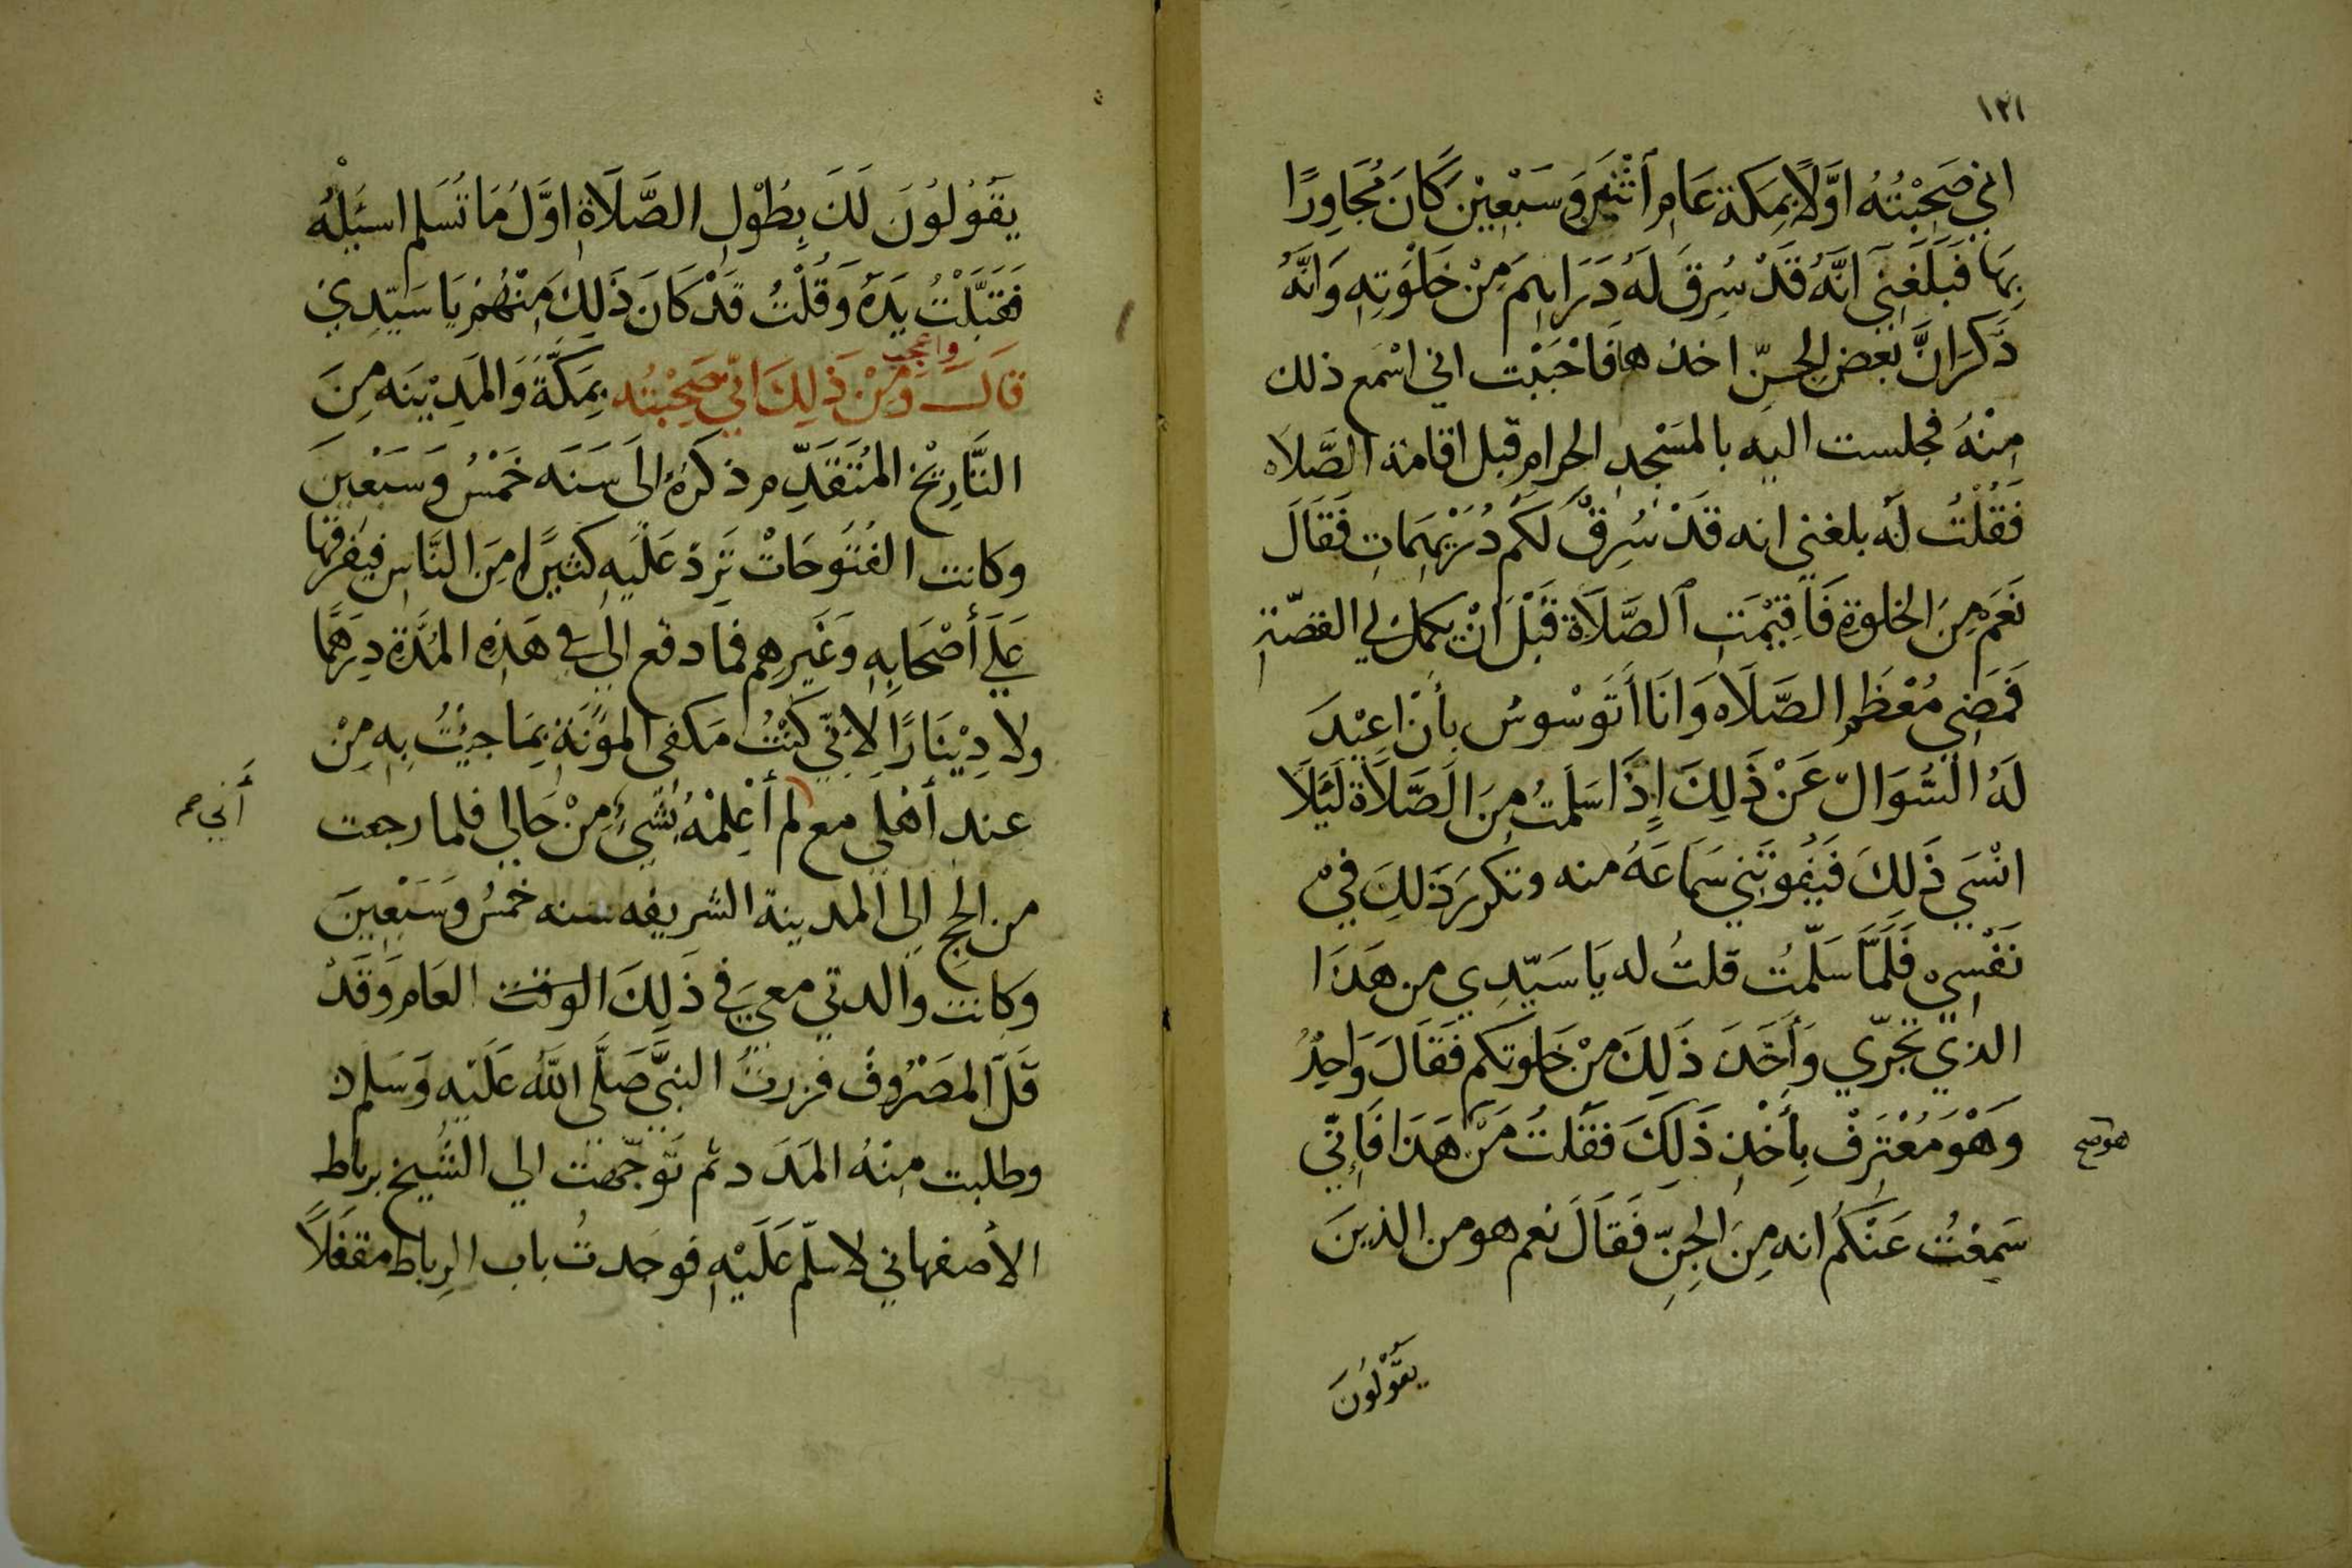 ١٢١
اني صَحِبْتُهُ اوَّلًا بِمَكة عَامَ اثْنَيْن وَسَبْعِيْنَ كَانَ مُجَاوِرًا
بِهَا فَبَلَغَنِي اَنَّهُ قَدْ سُرِقَ لَهُ دَرَاهِمَ مِنْ خَلْوَتِهِ وَانَّهُ
ذَكَرَ انَّ بَعْضَ الجِنّ اخذها فَاحْبَبْت اني اسْمَع ذلك
مِنْهُ فجلست اليه بالمَسْجدِ الحرام قبل اقامة الصَّلَاه
فَقُلْتُ لَه بلغني انه قَدْ سُرِقَ لَكُم دُرَيْهِمَات فَقَالَ
نَعَم مِنَ الخلوة فَاقِيْمَتِ الصَّلَاة قَبْلَ انْ يكمل لي القصّة
فَمَضَي مُعْظَم الصَّلَاه وَانَا أَتَوَسْوسُ بأنْ اعِيْدَ
لَهُ السُّوَالَ عَنْ ذَلِكَ إِذَا سَلمتُ مِنَ الصَّلَاة لَئَلَا
انْسَي ذَلِكَ فَيَفُوتَنِي سَمَاعَهُ منه وتكررَ ذَلِكَ فِيْ
نَفْسِي فَلَمَّا سَلّمْتُ قلتُ له يَا سَيّدِي من هَذَا
الذي تَجَرّي وَأَخَذَ ذَلِكَ مِنْ خَلوتكم فَقَالَ وَاحِدٌ
وَهْوَ مُعْتَرِفٌ بِأَخْذِ ذَلِكَ فَقُلتُ مَنْ هَذَا فَإِنّي
هوصح
سَمِعْتُ عَنْكُم انه مِنَ الجِنِّ فَقَالَ نعم هو من الذينَ
يَقُوْلُونَ
يَقُولُونَ لَكَ بِطُوْلِ الصَّلَاةِ اوَّلُ مَا تُسَلم اسئَلْهُ
فَقَبَّلْتُ يَدَهُ وَقُلْتُ قَدْ كَانَ ذَلِكَ مِنْهُمْ يَا سَيّدِي
واعجب
قالَ وَمِنْ ذَلِكَ انّي صَحِبْتُه بِمَكَّةَ وَالمَدِيْنَه مِنَ
التَّارِيْخ المُتَقَدِّم ذكرَهُ الَى سَنَه خَمْسُ وَسَبْعِينَ
وكانت الفُتُوحَاتْ تَرِدْ عَلَيهِ كَثِيرًا مِنَ النَّاسِ فيفرقها
عَلَي أَصْحَابِهِ وَغَيرِهم فَمَا دفع الي فِي هَذِهِ المُدَّة دِرَهمًا
ولا دِيْنَارًا لأنّي كُنْتُ مَكفي المؤنَة بِمَا جيْتُ بِهِ مِنْ
عند أَهْلي مع لم أُعْلِمْهُ بِشَيءٍ مِنْ حَالي فلما رجعت
أَني صح
من الحج الي المدينة الشريفه سنه خمسُ وَسَبْعِينَ
وكانت والدتي معي فِي ذَلِكَ الوقت العَام وَقَدْ
قَلَ المَصْرُوف فزرتُ النبيَّ صَلَّى الله عَلَيْهِ وَسَلم
وطلبت مِنْهُ المَدَد ثم تَوجّهت الي الشيخ برباط
الأصفهاني لاسلّم عَلَيْهِ فوجدتُ باب الرباط مقفَلًا